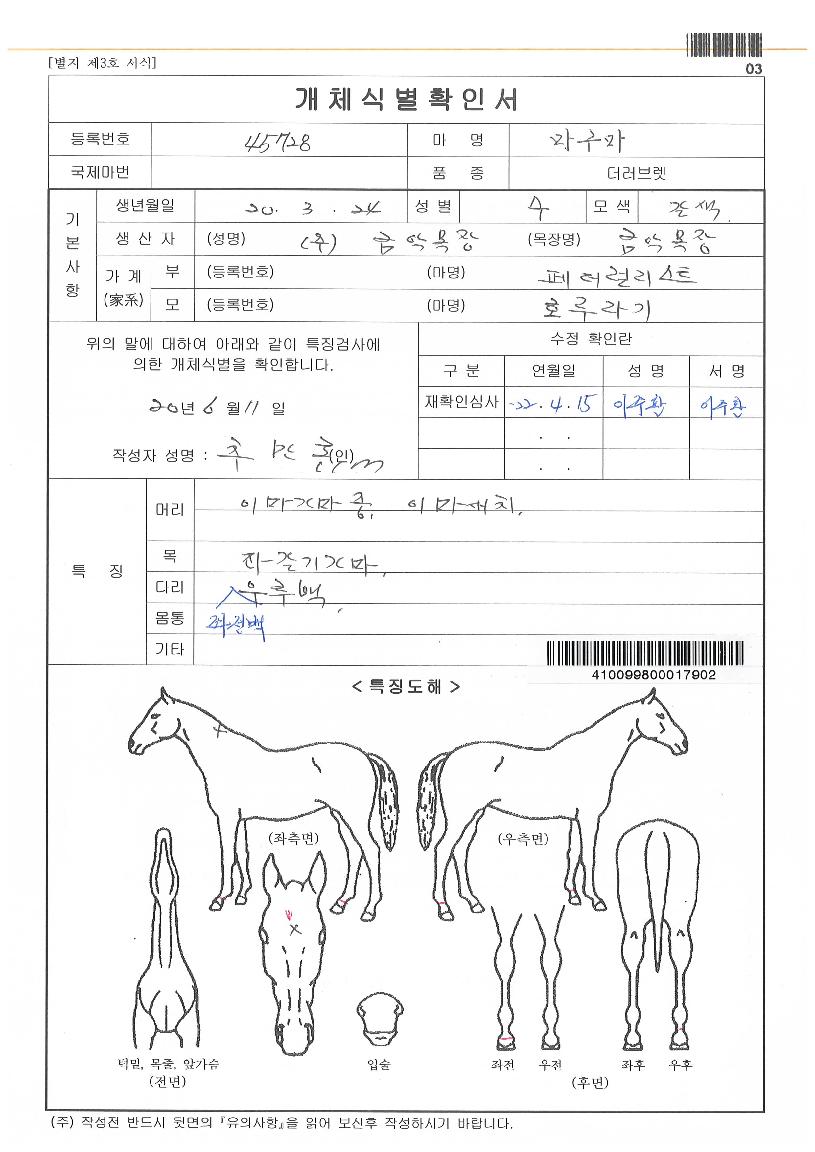 [별지 제3호 서식]
03
개체식별확인서
등록번호 45728 마 명 라구마
국제마번 품 종 더러브렛
기본사항
생년월일 20. 3. 24 성 별 수 모 색 갈색
생 산 자 (성명) (주) 금악목장 (목장명) 금악목장
가 계 (家系) 부 (등록번호) (마명) 페더럴리스트
모 (등록번호) (마명) 호루라기
위의 말에 대하여 아래와 같이 특징검사에
의한 개체식별을 확인합니다.
20년 6월 11일
작성자 성명 : (인)
수정 확인란
구 분 연월일 성 명 서 명
재확인심사 22. 4. 15 이주환 이주환
. .
. .
특 징
머리 이마가마중, 이마새치.
목 좌-갈기가마,
다리 우후백,
몸통 좌전백
기타
410099800017902
< 특징도해 >
(좌측면) (우측면)
턱밑, 목줄, 앞가슴 입술 좌전 우전 좌후 우후
(전면) (후면)
(주) 작성전 반드시 뒷면의 『유의사항』을 읽어 보신후 작성하시기 바랍니다.